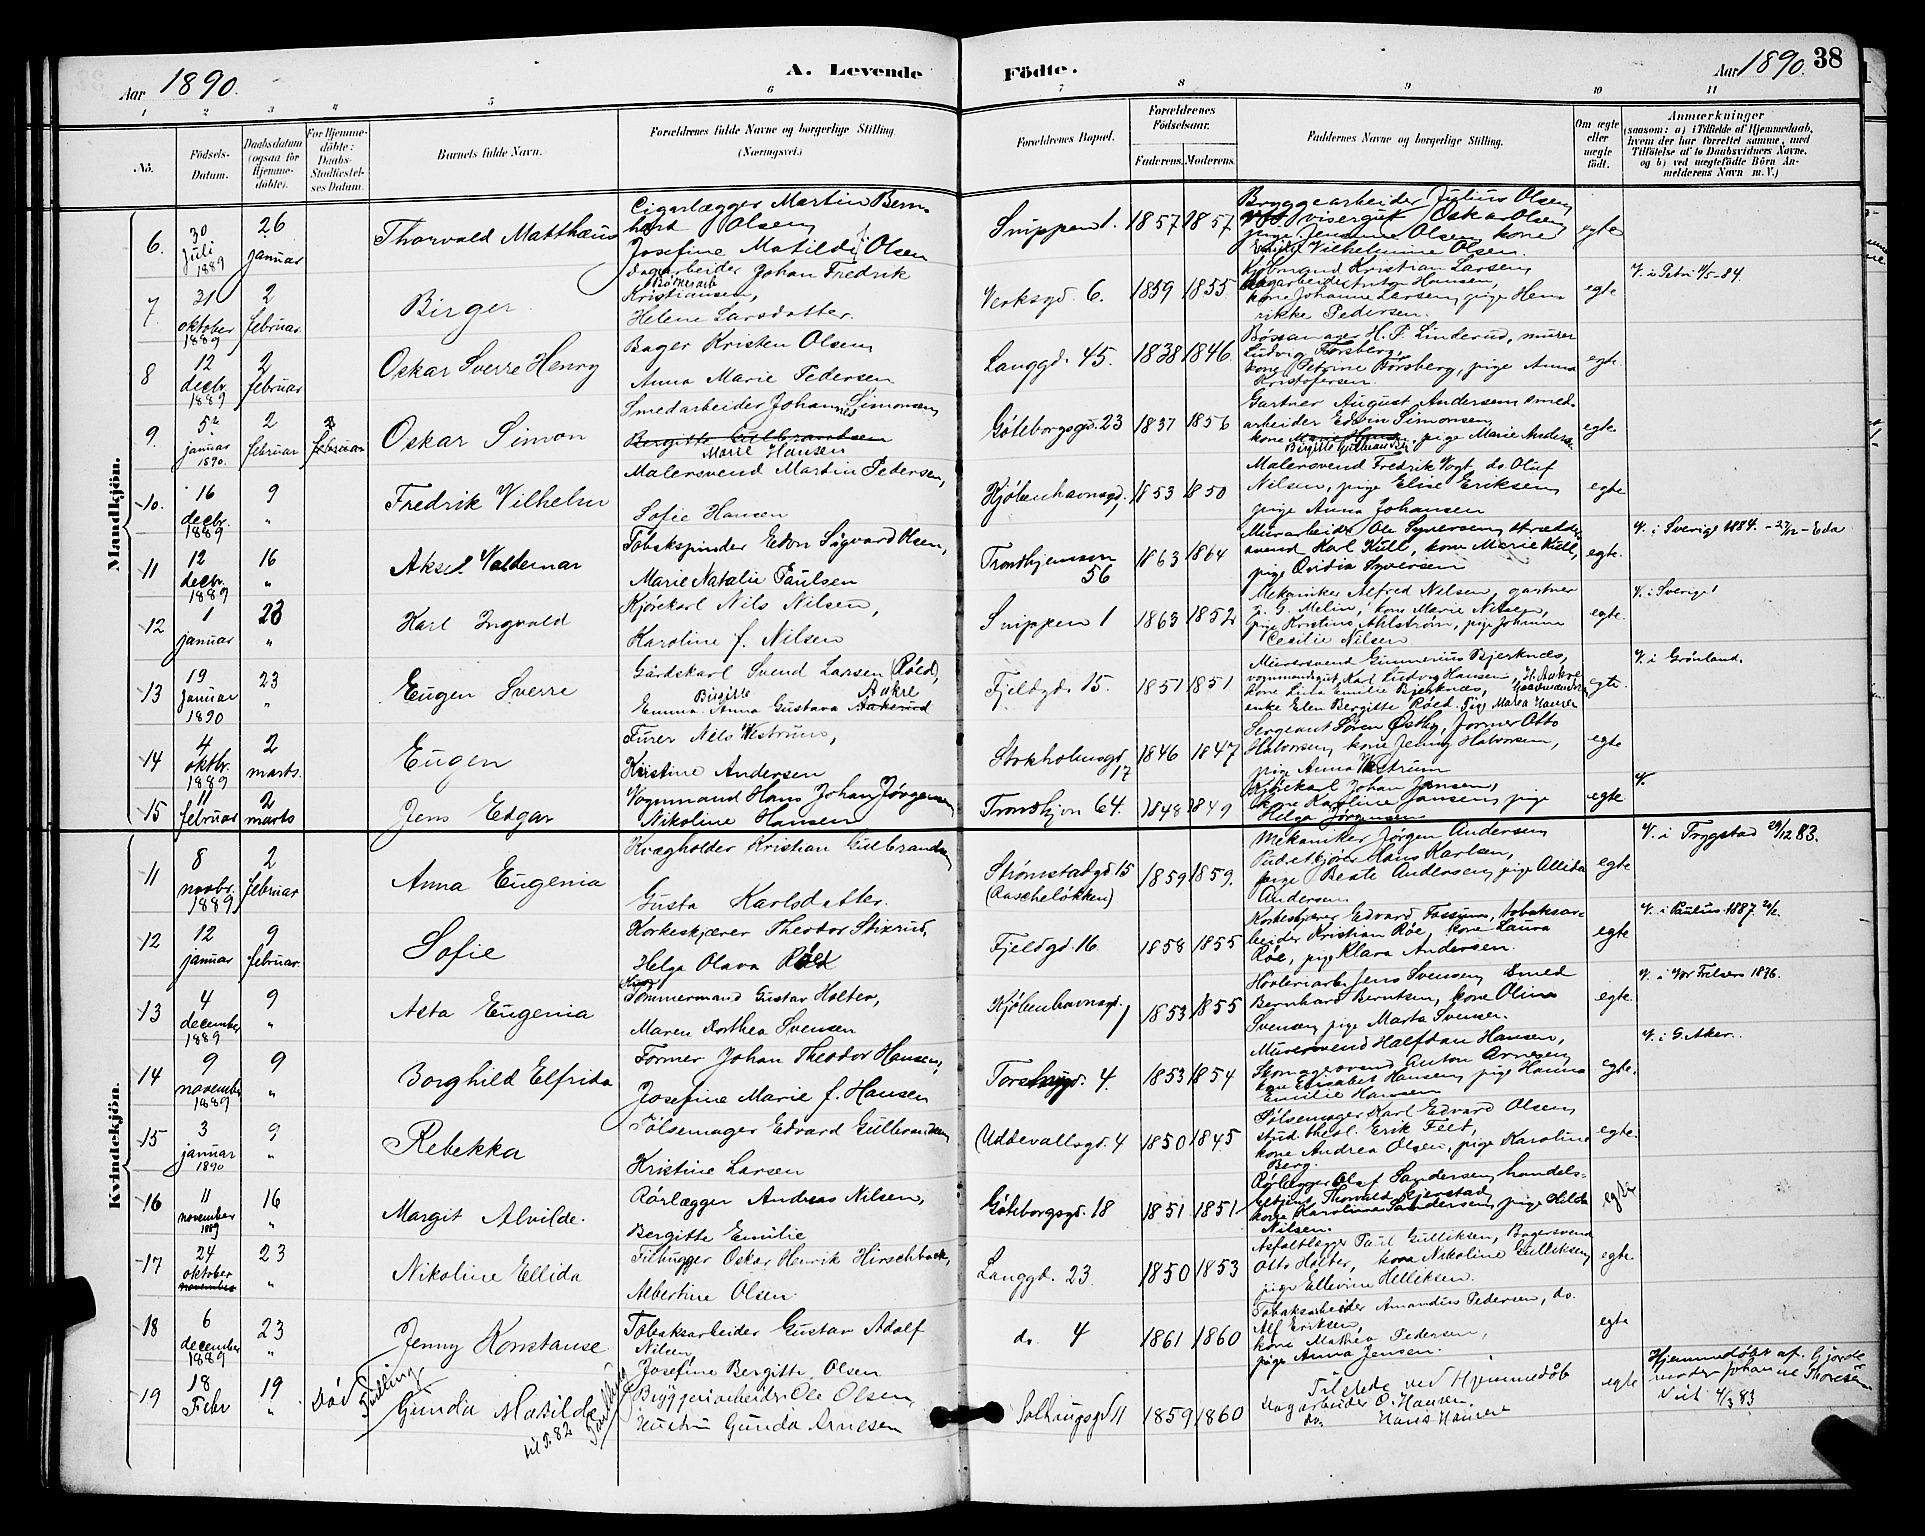 Aar 1890.
A. Levende
Födte.
Aar 1890.
38
1 2 3 4 5 6 7 8 9 10 11
No.
Födsels-Datum.
Daabsdatum (ogsaa for Hjemmedöbte).
For Hjemmedöbte: Daabs-Stadfæstelses Datum.
Barnets fulde Navn.
Forældrenes fulde Navne og borgerlige Stilling.
(Næringsvei.)
Forældrenes Bopæl.
Forældrenes Födselsaar.
Faderens. Moderens.
Faddernes Navne og borgerlig Stilling.
Om ægte eller uægte födt.
Anmærkninger
(saasom: a) i Tilfælde af Hjemmedaab, hvem der har forrettet samme, med Tilföielse af to Daabsvidners Navne, og b) ved uægtefödte Börn Anmelderens Navn m. V.)
Mandkjön.
6. 30 Juli 1889 26 januar Thorvald Matthæus
Cigarlægger Martin Bernhard Olsen
Josefine Matilde f. Olsen
Snippen 1. 1857 1857
Bryggearbeider Julius Olsen
visergut Oskar Olsen
pige Jensine Olsen kone
Emilie Vilhelmine Olsen.
egte
7. 31 oktober 1889 2 februar. Birger.
dagarbeider Johan Fredrik
Kristiansen,
Helene Larsdatter.
Verksgd. 6. 1859 1855
Kjøbmand Kristian Larsen,
dagarbeider Anton Hansen,
kone Johanne Larsen, pige Henrikke Pedersen.
egte
V. i Petri 4/5-84.
8 12 decbr. 1889 2 februar Oskar Sverre Henry
Bager Kristen Olsen
Anna Marie Pedersen
Langgd. 45. 1838 1846
Børsemager H. P. Linderud, murer
Ludvig Forsberg,
kone Petrine Forsberg, pige Anna
Kristofersen.
egte
9. 5te januar 1890. 2 februar 2 februar Oskar Simon
Smedarbeider Johannes Simonsen
Bergitte Gulbrandsen
Marie Hansen
Göteborgsgd. 23 1837 1856
Gartner August Andersen, smedarbeider Edvin Simonsen
kone Marie Hansen, pige Marie Andersen
Birgitte Gulbrandsen
egte
10. 16 decbr. 1889 9 " Fredrik Vilhelm
Malersvend Martin Pedersen,
Sofie Hansen
Kjöbenhavnsgd. 1853 1850
Malersvend Fredrik Vogt, do. Oluf
Nilsen, pige Elise Eriksen
pige Anna Johansen
egte
11 12 decbr. 1889 16 " Aksel Valdemar
Tobakspinder Edvn Sigvard Olsen,
Marie Natalie Paulsen
Trondhjemsvn 56 1863 1864
Murarbeider Ole Syversen, skræddersvend Karl Kull, kone Marie Kull,
pige Ovidia Syversen
egte.
V. i Sverige 1884. - 27/12 - Eda
12 1 januar 23 " Karl Ingvald
Kjörekarl Nils Nilsen,
Karoline f. Nilsen
Snippen 1 1863 1852
Mekaniker Alfred Nilsen, gartner
J. G. Melin, kone Marie Nilsen,
pige Kristine Ahlström, pige Johanne
Cecilie Nilsen
egte.
V. i Sverige!
13 19 Januar 1890 23 " Eugen Sverre
Gårdskarl Svend Larsen (Röed),
Birgitte Aakre
Emma Anna Gustava Aakerud
Fjeldgd. 15. 1851 1851
Murersvend Gunnerius Bjerknæs,
vognmandsgut Karl Ludvig Hansen, H. Aakre
kone Lina Emilie Bjerknæs,
enke Elen Bergitte Röed. Pige Maren Hansen
egte.
V. i Grönland.
14 4 oktbr. 1889 2 marts. Eugen
Furer Nils Westrum,
Kristine Andersen
Stokholmsgd. 17 1846 1847
Sergeant Søren Østby, former Otto
Halvorsen, kone Jenny Halvorsen,
pige Anna Westrum
egte
15 11 februar 2 marts Jens Edgar
Vognmand Hans Johan Jørgensen
Nikoline Hansen
Trondhjvn 64. 1848 1849
Johan Jansen,
kone Karoline Jansen, pige
Helga Jørgensen
egte
V.
Kvindekjön.
11 8 novbr. 1889 2 februar Anna Eugenia
Kvægholder Kristian Gulbrandsen
Gusta Karlsdatter.
Strømstadgd 15 (Rascheløkken) 1859 1859.
Mekaniker Jørgen Andersen
Pudretkjører Hans Karlsen,
pige Beate Andersen, pige Allida
Andersen
egte
V. i Trygstad 29/12 83.
12 12 januar 9 februar. Sofie
Korkeskjærer Theodor Stixrud
Helga Olava Röed
Fjeldgd. 16 1858 1855
Korkeskjærer Edvard Fossum, tobaksarbeider Kristian Röe, kone Laura
Röe, pige Klara Andersen.
egte
V. i Paulus 1887.
13 4 december 1889 9 " Asta Eugenia
Tömmermand Gustav Holter,
Maren Dorthea Svensen
Kjöbenhavnsgd. 1 1853 1855
Høvleriarb. Jens Svensen Smed
Bernhard Berntsen, kone Oline
Svensen, pige Marta Svensen.
egte.
V. i Vor Frelsers 1876.
14 9 november 1889 9 " Borghild Elfrida
Former Johan Theodor Hansen,
Josefine Marie f. Hansen
4. 1853 1854
Murersvend Halfdan Hansen,
Skomagersvend Anton Arnesen
kone Elisabet Hansen, pige Hanna
Emilie Hansen
egte.
V. i G. Aker.
15 3 januar 1890 9 " Rebekka
Pölsemager Edvard Gulbrandsen
Kristine Larsen
Uddevallagd. 4 1850 1845
Pölsemager Karl Edvard Olsen
stud. theol. Erik Feet,
kone Andrea Olsen, pige Karoline
Berg.
egte.
16 11 november 1889 16 " Margit Alvilde.
Rörlægger Andreas Nilsen,
Bergitte Emilie
Göteborgsgd. 18 1851 1851
Rörlægger Olaf Sandersen, handelsbetjent Thorvald Gjerstad,
kone Karoline Sandersen, pige Hilda
Nilsen.
egte
17 24 oktober november 23 " Nikoline Ellida
Tilhugger Oskar Henrik Hirschback,
Albertine Olsen
Langgd. 23. 1850 1853
Asfaltlægger Paul Gulliksen, Bagersvend
Otto Holter, kone Nikoline Gulliksen
pige Ellevine Helliksen.
egte
18 6 december 1889 23 " Jenny Konstanse
Tobaksarbeider Gustav Adolf
Nilsen,
Josefine Bergitte Olsen
do. 4 1861 1860
Tobaksarbeider Amandus Pedersen, do.
Alf Eriksen,
kone Mathea Pedersen,
pige Anna Jensen.
egte
19 18 Febr 19 " Död Tvilling Gunda Matilde Tvilling
til S. 82
Bryggeriarbeider Ole Olsen
Hustru Gunda Arnesen
11 1859 1860
Tilstede ved Hjemmedåb
Dagarbeider O. Hansen.
do. Hans Hansen
egte
Hjemmedöbt af Gjordemoder Johanne Thoresen
Viet 4/3 83